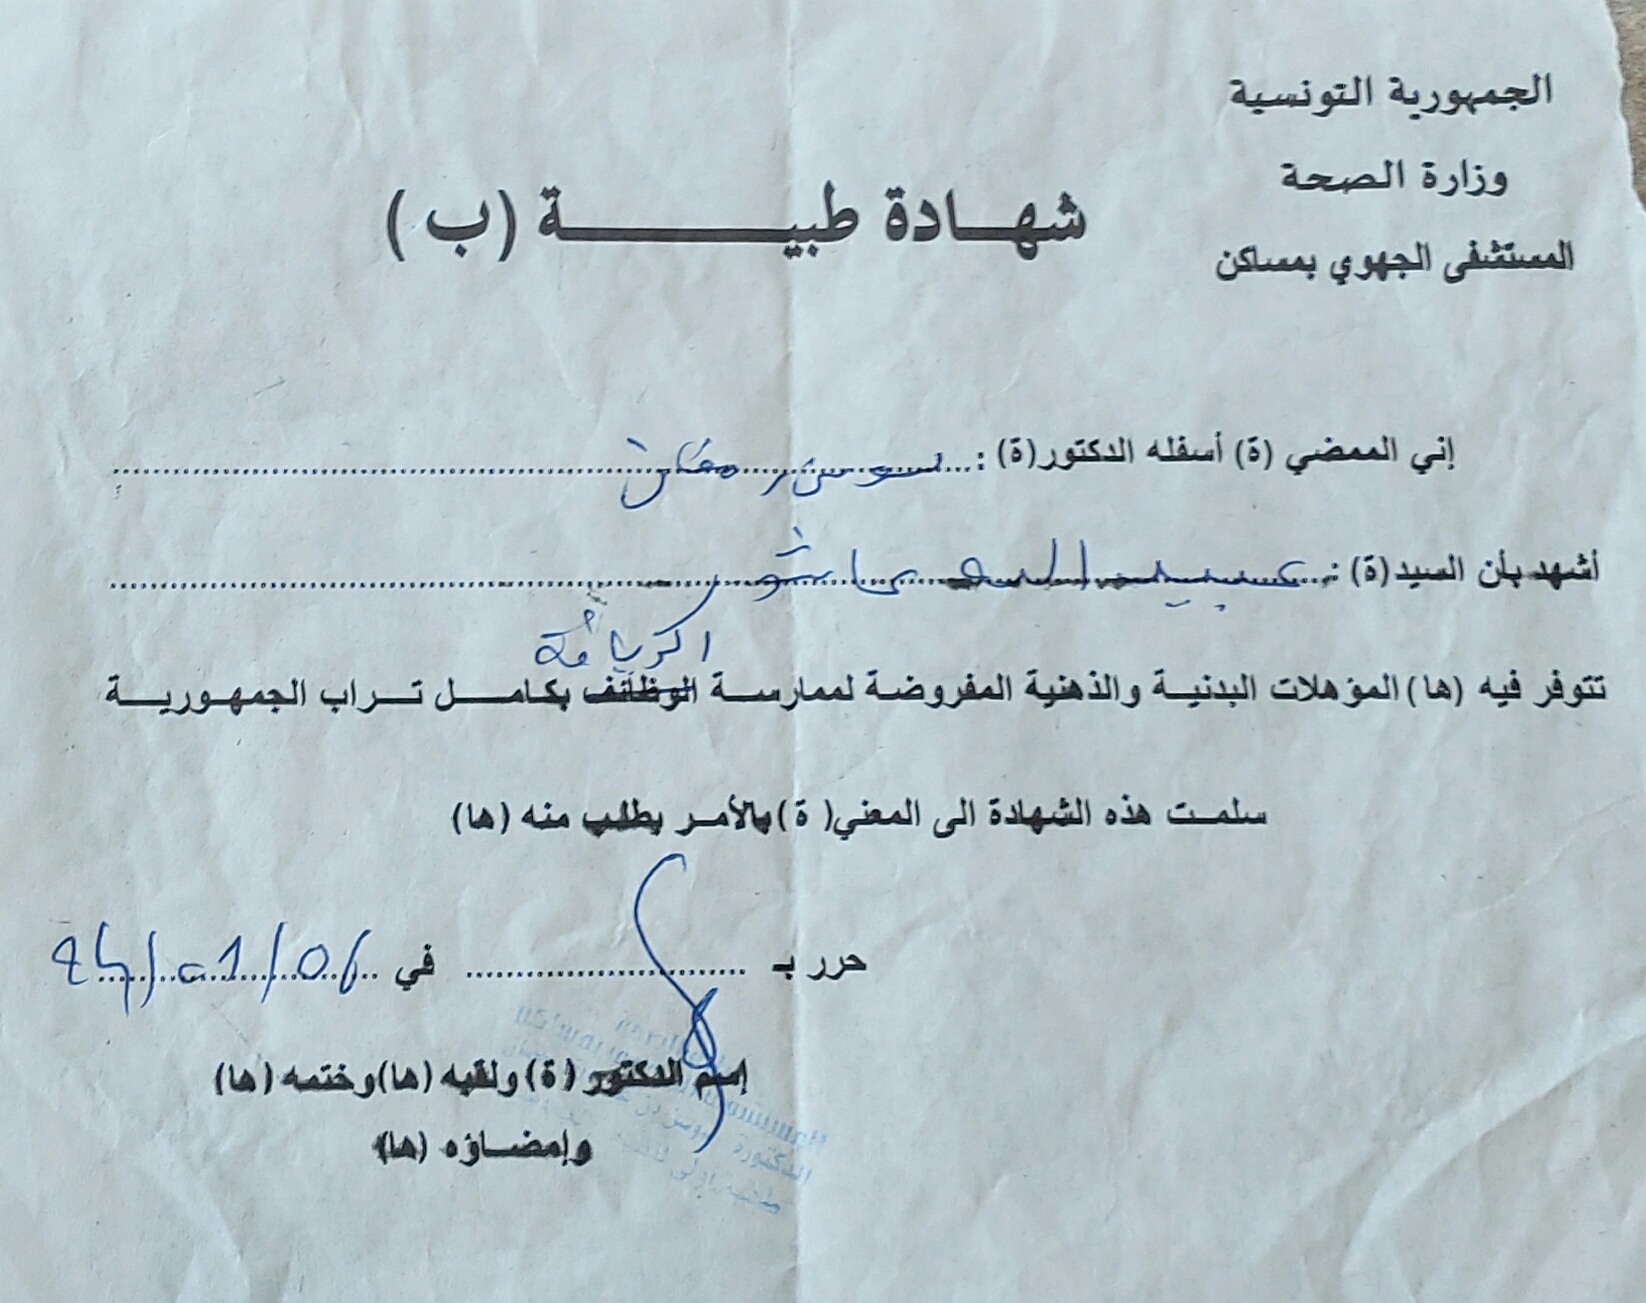 الجمهورية التونسية
وزارة الصحة
المستشفى الجهوي بمساكن
شهادة طبية (ب)
إني الممضي (ة) أسفله الدكتور(ة) : سوسن
أشهد بأن السيد(ة) : عبيد الله عاشور
الرياضة
تتوفر فيه (ها) المؤهلات البدنية والذهنية المفروضة لممارسة الوظائف بكامل تراب الجمهورية
سلمت هذه الشهادة الى المعني( ة) بالأمر بطلب منه (ها)
حرر بـ في 24/01/06
إسم الدكتور (ة) ولقبه (ها) وختمه (ها)
وإمضاؤه (ها)
الدكتورة